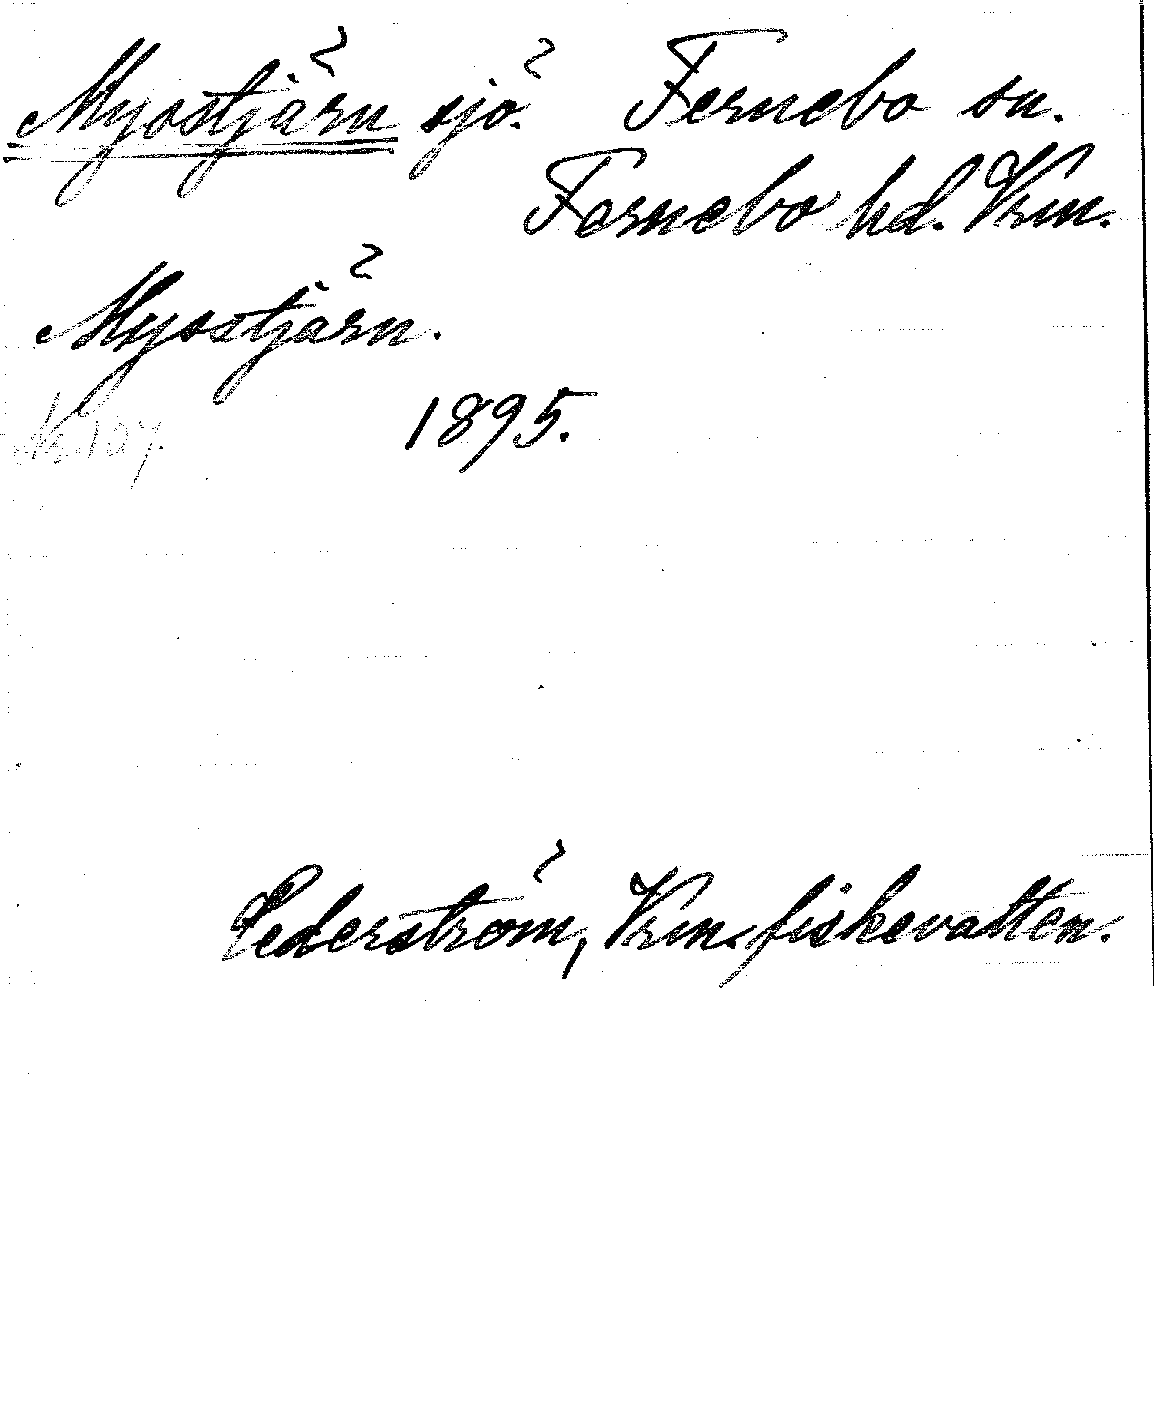 Myostjärn sjö. Fernebo sn.
Fernebo hd. Vrm.
Myostjärn.
Nr. 127. 1895.
Cederström, Vrm. fiskevatten.